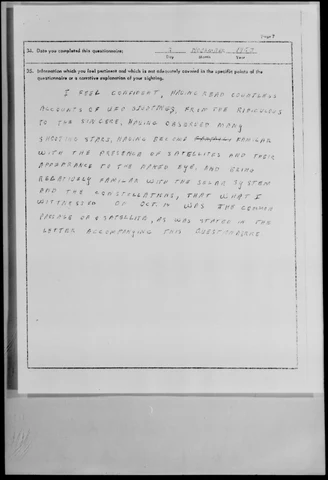 Page 7
34. Date you completed this questionnaire:
NOVEMBER
Day Month Year
35. Information which you feel pertinent and which is not adequately covered in the specific points of the
questionnaire or a narrative explanation of your sighting.
I FEEL CONFIDENT, HAVING READ COUNTLESS
ACCOUNTS OF UFO SIGHTINGS, FROM THE RIDICULOUS
TO THE SINCERE, HAVING OBSERVED MANY
SHOOTING STARS, HAVING BECOME FAMILIAR
WITH THE PRESENCE OF SATELLITES AND THEIR
APPEARANCE TO THE NAKED EYE, AND BEING
RELATIVELY FAMILIAR WITH THE SOLAR SYSTEM
AND THE CONSTELLATIONS, THAT WHAT I
WITNESSED OF OCT. WAS THE COMMON
PASSAGE OF A SATELLITE, AS WAS STATED IN THE
LETTER ACCOMPANYING THIS QUESTIONNAIRE.